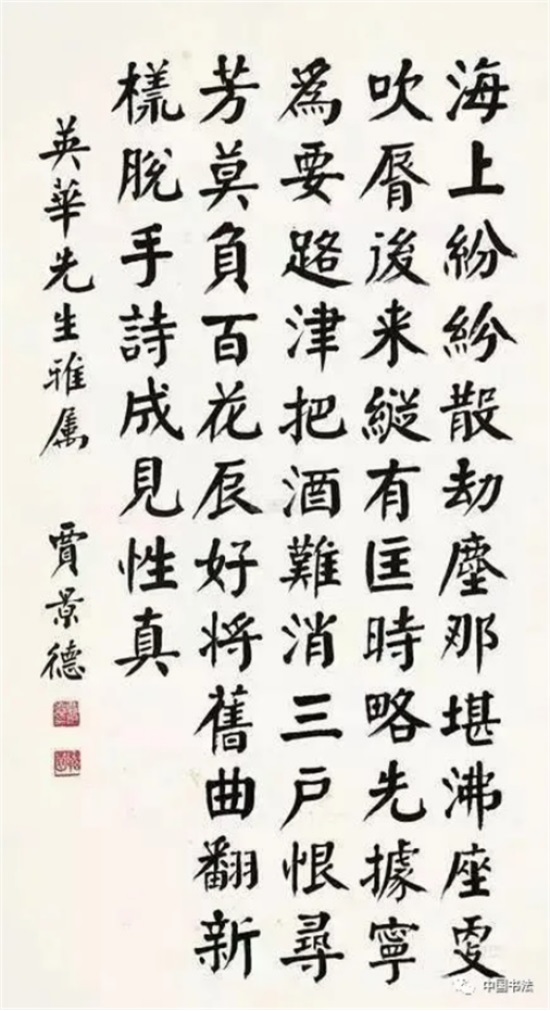 海上紛紛散劫塵那堪沸座更
吹脣後来縱有匡時略先據寧
爲要路津把酒難消三戶恨尋
芳莫負百花辰好將舊曲翻新
樣脫手詩成見性真
英華先生雅属 賈景德
中国书法